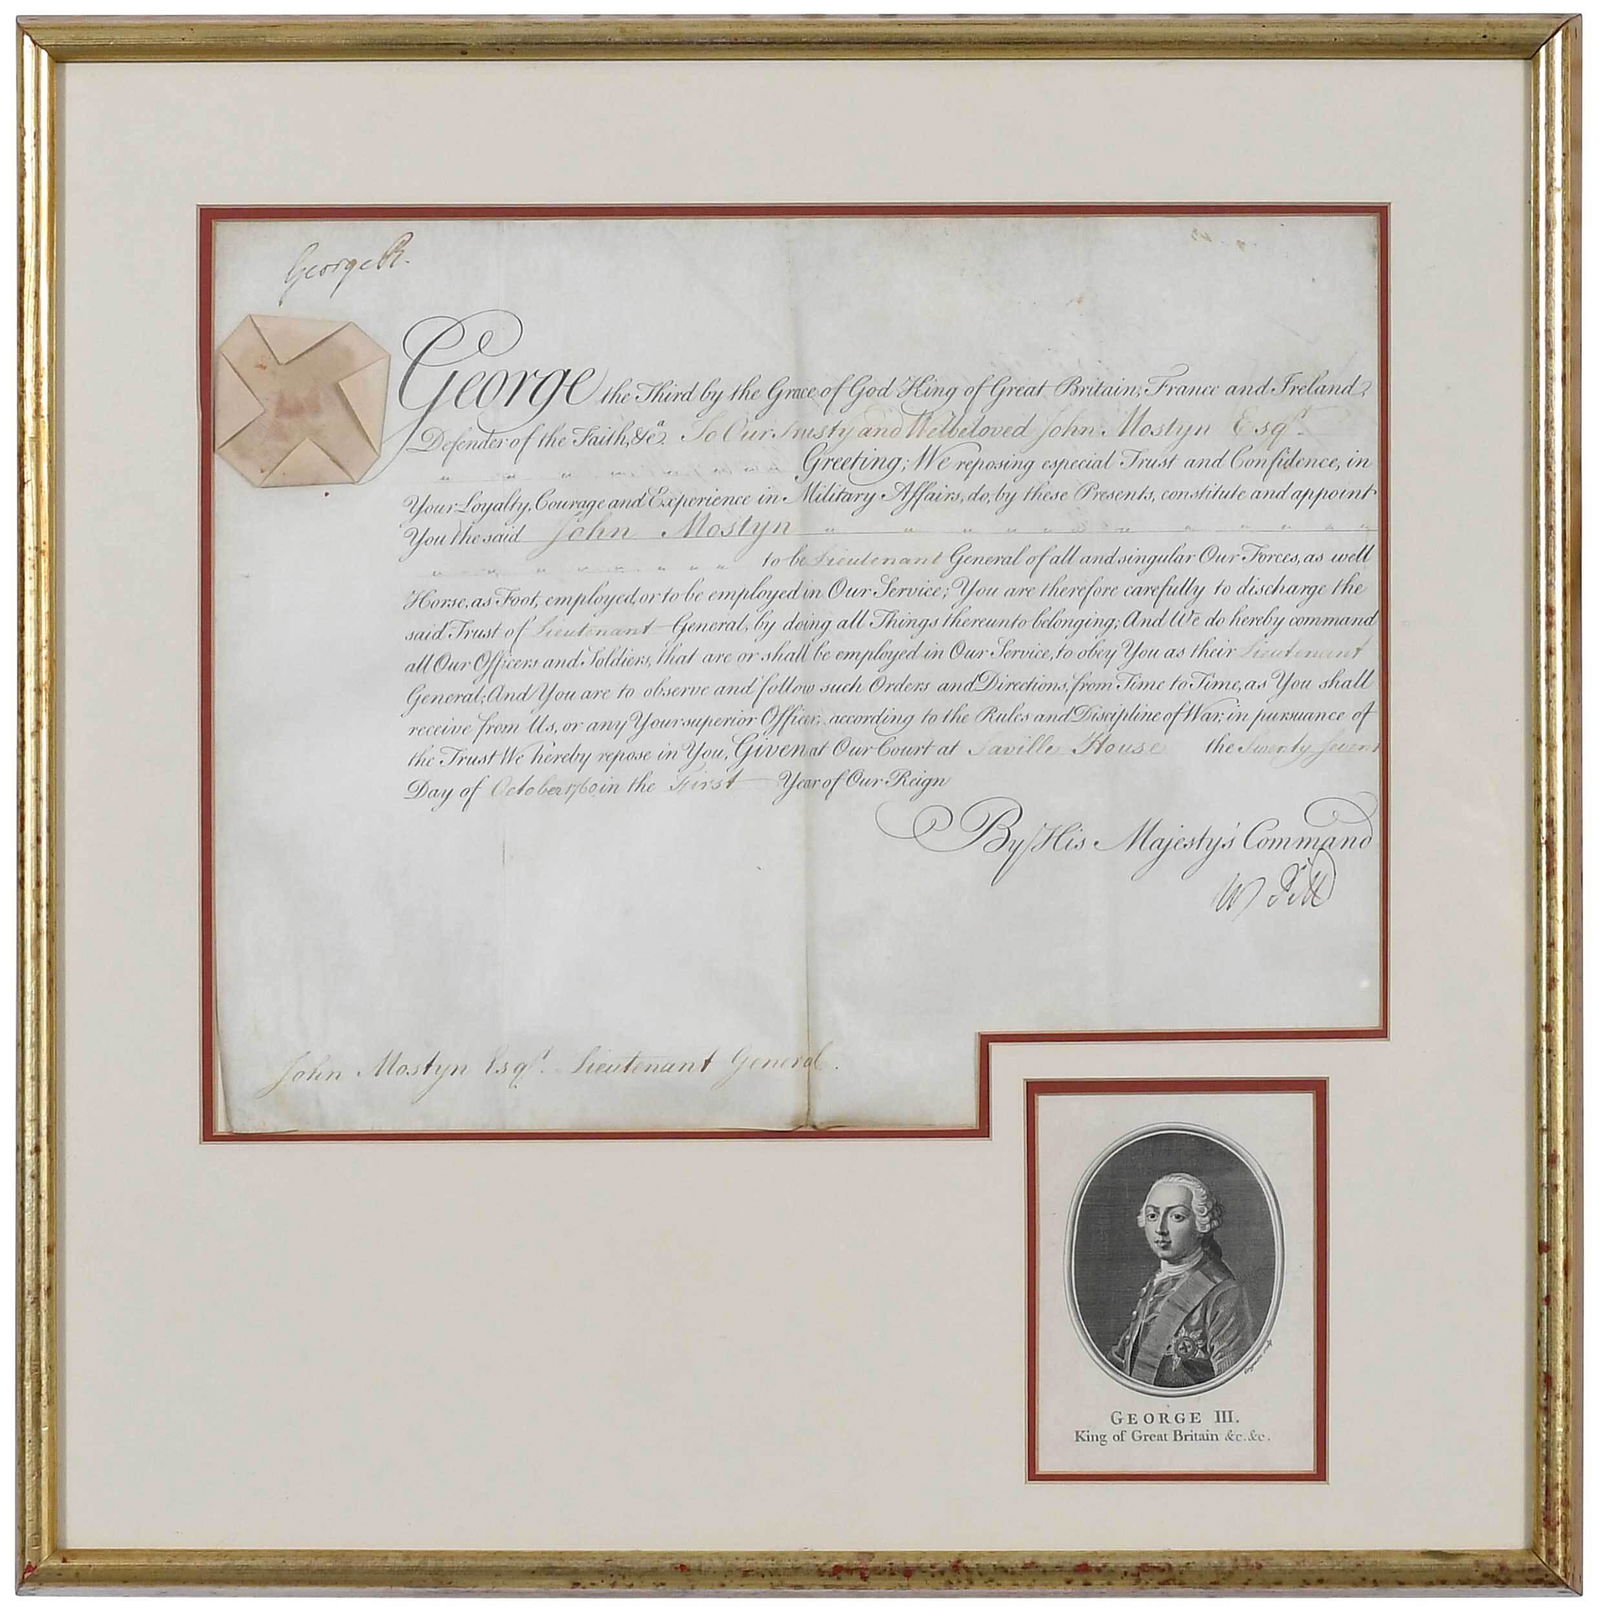 George R.
George the Third by the Grace of God King of Great Britain, France and Ireland,
Defender of the Faith, &cᵃ. To Our Trusty and Welbeloved John Mostyn Esqʳ.
Greeting; We reposing especial Trust and Confidence, in
Your Loyalty, Courage and Experience in Military Affairs, do, by these Presents, constitute and appoint
You the said John Mostyn
to be Lieutenant General of all and singular Our Forces, as well
Horse, as Foot, employed, or to be employed in Our Service; You are therefore carefully to discharge the
said Trust of Lieutenant General, by doing all Things thereunto belonging; And We do hereby command
all Our Officers and Soldiers, that are or shall be employed in Our Service, to obey You as their Lieutenant
General; And You are to observe and follow such Orders and Directions, from Time to Time, as You shall
receive from Us, or any Your superior Officer, according to the Rules and Discipline of War, in pursuance of
the Trust We hereby repose in You, Given at Our Court at Saville House the Twenty Seven
Day of October 1760 in the First Year of Our Reign
By His Majesty's Command
W Pitt
John Mostyn Esqʳ. Lieutenant General.
GEORGE III.
King of Great Britain &c.&c.